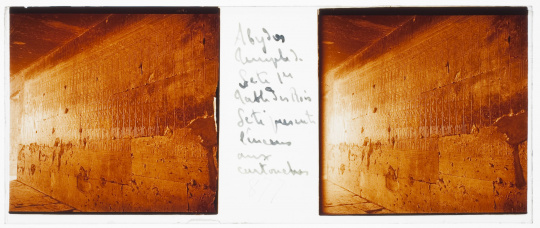 Abydos
Temple de
Seti 1er
Table des Rois
Seti présente
l'encens
aux
cartouches